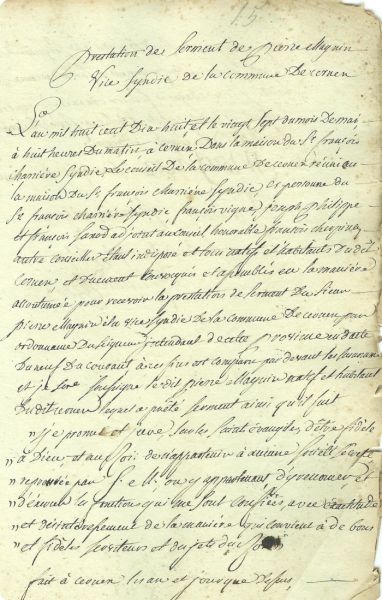 15
Prestation de Serment de Pierre Magnin
Vice Syndic de la commune De cornen
L'an mil huit cent Dix huit et le vingt Sept du mois De mai
à huit heures Du matin à cornen Dans la maison du Sr françois
charrière Syndic Le conseil De la commune De cornen réuni au
la maison Du Sr françois charrière Syndic es personne du
Sr françois charrière Syndic françois vigne joseph philippe
et françois adjoint au conseil honorable françois
autre conseiller et tous natifs et habitants Du dit
cornen et Duement convoqués et assemblés en la manière
accoutumée pour recevoir la prestation de serment Du Sieur
pierre Magnin élu vice Syndic de la commune De cornen par
ordonnance Du Seigneur intendant de cette province en datte
Du neuf Du courant à ces fins est comparu par devant les
et je Soussigné le dit pierre Magnin natif et habitant
Du dit cornen lequel a prêté serment ainsi qu'il suit
" je promet et jure Sur les Saints évangiles d'être fidele
" à Dieu et au Roi de n'appartenir à aucune Société Secrete
" par S. et d'y renoncer et
" D'exercer les fonctions qui me sont confiées avec exactitude
" et de la manière qui convient à de bons
" et fidèles serviteurs et Sujets du
fait à cornen les an et jour que Dessus